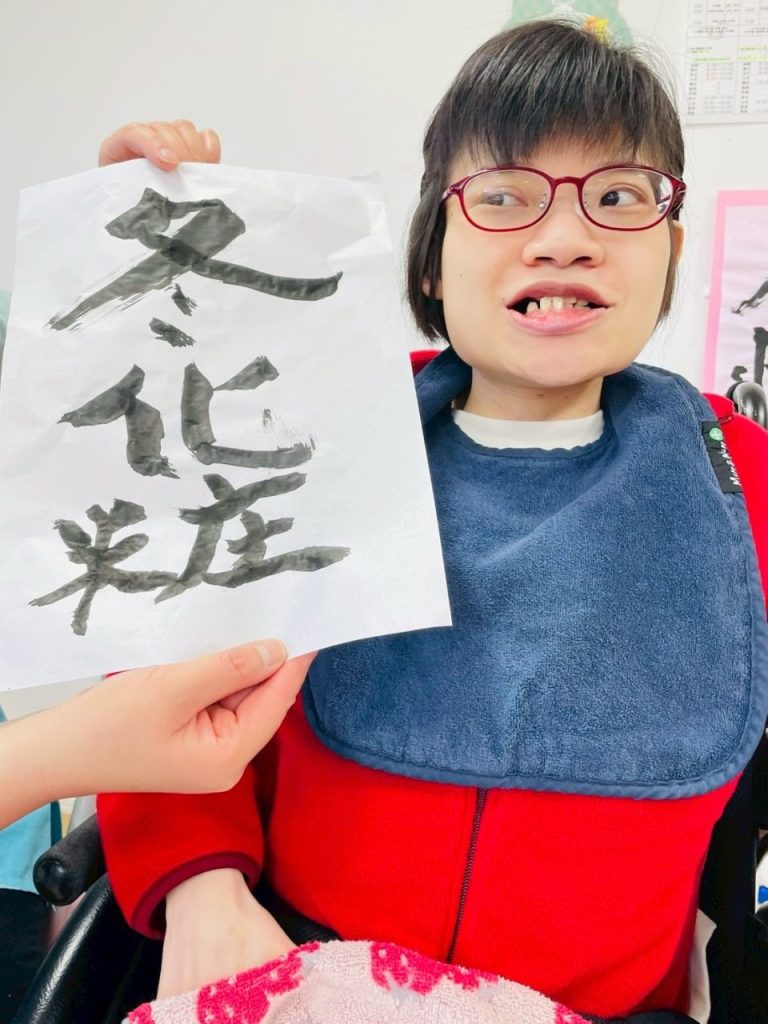 冬
化
粧